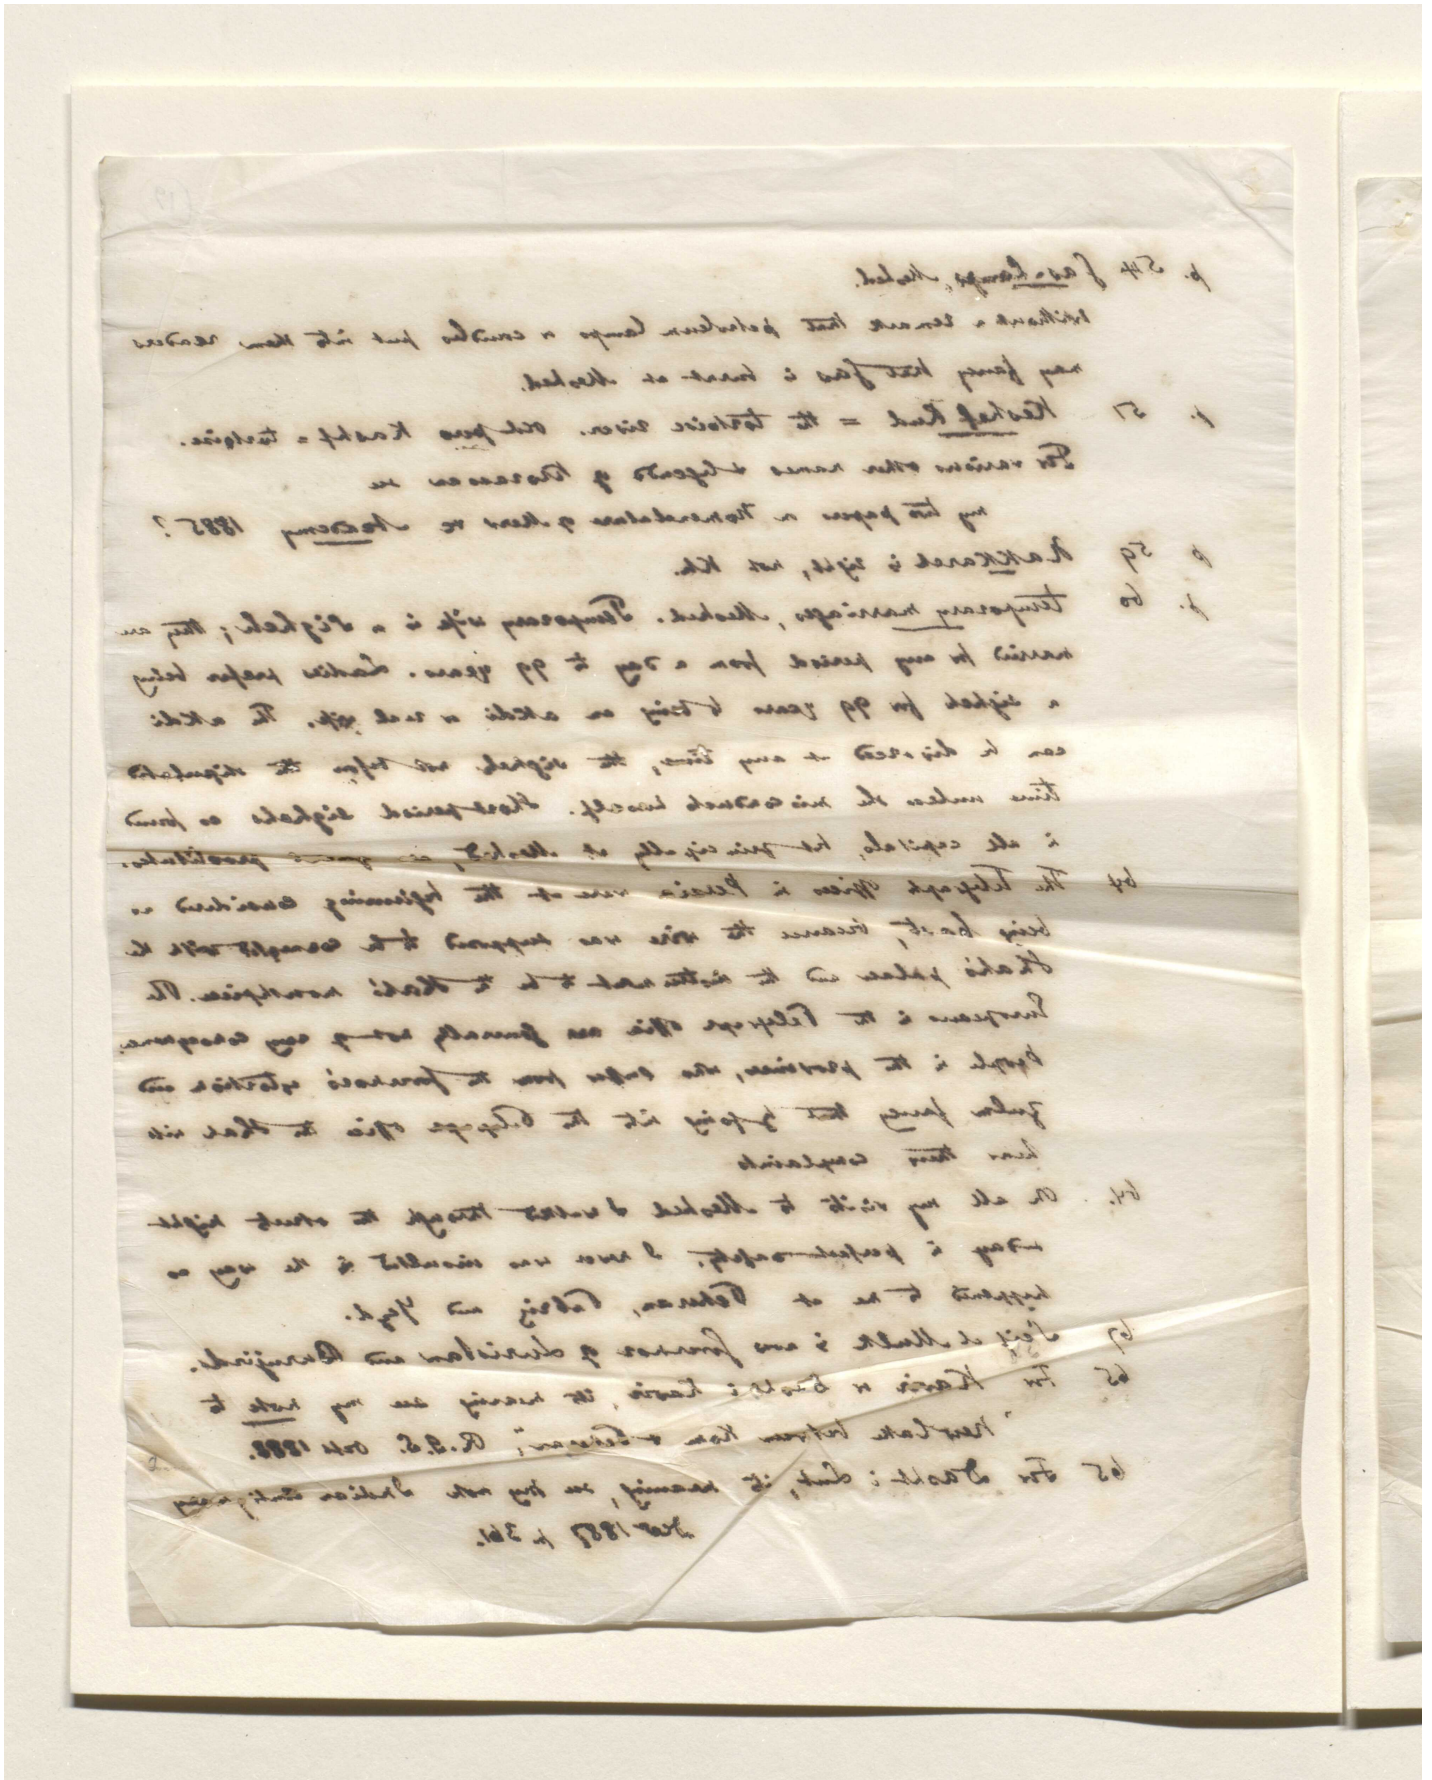 p. 54 Gas-Lamps, Meshed.
Without a remark that petroleum lamps or candles put into them readers
may fancy that gas is burnt at Meshed.
p. 57 Keshef Rud = the tortoise river. Old pers Kashf = tortoise.
For various other names & legends of Khorassan see
my two papers on Nomenclature of Merv &c Academy 1885?
p 59 Nakkareh is right, not Kh.
p. 60 temporary marriages, Meshed. Temporary wife is a Sigheh; they are
married for any period from a day to 99 years. Ladies prefer being
a sigheh for 99 years to being an akdi or real wife. The akdi
can be divorced at any time, the sigheh not before the stipulated
time unless she misconducts herself. Short-period sighehs are found
in all capitals, but principally at Meshed, as prostitutes.
64 The Telegraph offices in Persia were at the beginning considered as
being bast, because the wire was supposed to be connected with the
Shah's palace and the instrument to be the Shah's mouthpiece. The
Europeans in the Telegraph office are generally not of very
People in the provinces, who suffer from the governor's extortion and
zulm fancy that by going into the Telegraph office the Shah will
hear their complaints
64. On all my visits to Meshed I walked through the streets night
& day in perfect safety. I never was insulted in the way as
happened to me at Teheran, Tabriz and Yezd.
67 Seif ul Mulk is now governor of Luristan and Burujird.
65 For Kavir or Dasht i Kavir, its meaning see my note to
"New Lake between Kom & Teheran", R.G.S. Oct 1888.
65 For Dasht i Lut, its meaning, see my note Indian Antiquary
Decr 1887 p. 361.